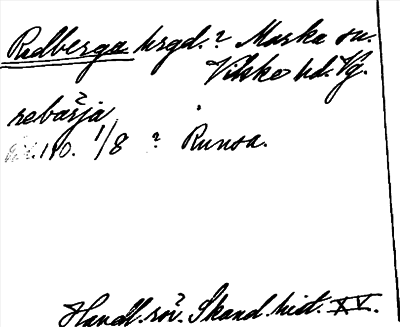 Redberga hrgd.? Marka sn.
Vilske hd. Vg.
rebärja
110. 1/8 ? Runsa.
Handl. rör. Skand. hist. XV.